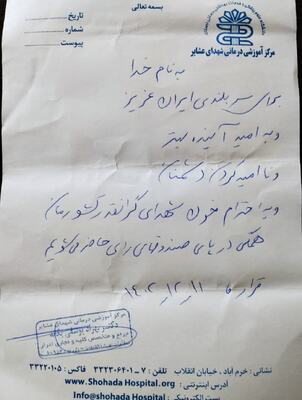 بسمه تعالی
تاریخ
شماره
پیوست
مرکز آموزشی درمانی شهدای عشایر
به نام خدا
برای سربلندی ایران عزیز
و به امید آینده بهتر
و نا امید کردن دشمنان
و به احترام خون شهدای گرانقدر کشورمان
همگی در پای صندوقهای رای حاضر می‌شویم
قرار ما ۱۴۰۲,۱۲,۱۱
مرکز آموزشی درمانی شهدای عشایر
نشانی : خرم آباد ، خیابان انقلاب تلفن : ۷ - ۳۳۲۳۰۶۴۰۱ فاکس : ۳۳۲۲۰۱۰۵
آدرس اینترنتی : www.Shohada Hospital.org
پست الکترونیکی : Info@shohada Hospital